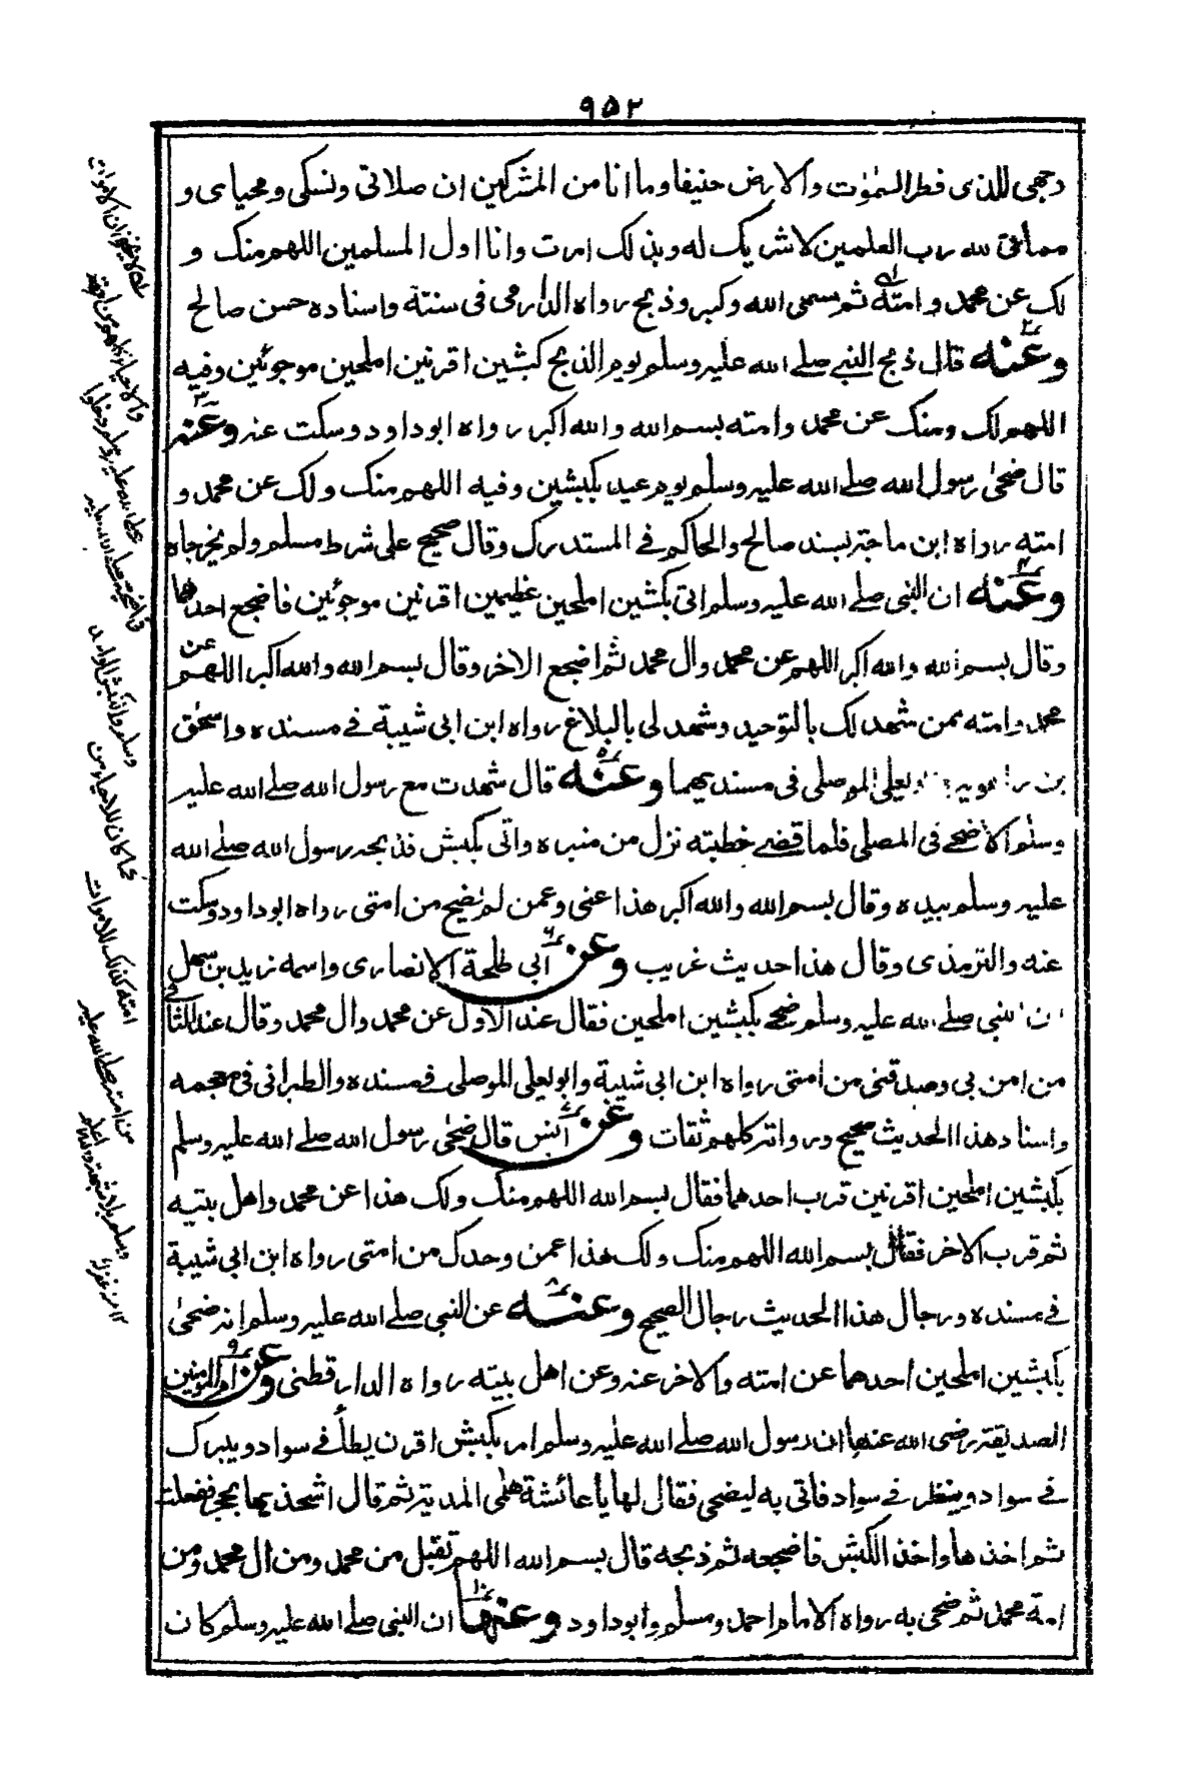 ۹۵۲
وجهی للذی فطر السمٰوٰت والارض حنیفا وما انا من المشرکین ان صلاتی ونسکی ومحیای و
مماتی لله رب العلمین لا شریک له وبذلک امرت وانا اول المسلمین اللهم منک و
لک عن محمد وامته ثم سمی الله وکبر وذبح رواه الدارمی فی سننه واسناده حسن صالح
وعنه قال ذبح النبی صلے الله علیه وسلم یوم الذبح کبشین اقرنین املحین موجوئین وفیه
اللهم لک ومنک عن محمد وامته بسم الله والله اکبر رواه ابوداود وسکت عنه وعنه
قال ضحیٰ رسول الله صلے الله علیه وسلم یوم عید بکبشین وفیه اللهم منک ولک عن محمد و
امته رواه ابن ماجة بسند صالح والحاکم فے المستدرک وقال صحیح علی شرط مسلم ولم یخرجاه
وعنه ان النبی صلے الله علیه وسلم اتی بکبشین املحین عظیمین اقرنین موجوئین فاضجع احدهما
وقال بسم الله والله اکبر اللهم عن محمد وال محمد ثم اضجع الاخر وقال بسم الله والله اکبر اللهم عن
محمد وامته ممن شهد لک بالتوحید وشهد لی بالبلاغ رواه ابن ابی شیبة فے مسنده واسحٰق
بن راهویه یعلی الموصلی فی مسندیهما وعنه قال شهدت مع رسول الله صلے الله علیه
وسلم الاضحے فی المصلی فلما قضے خطبته نزل من منبره واتی بکبش فذبحه رسول الله صلے الله
علیه وسلم بیده وقال بسم الله والله اکبر هذا عنی وعمن لم یضح من امتی رواه ابوداود وسکت
عنه والترمذی وقال هذا حدیث غریب وعن ابی طلحة الانصاری واسمه زید بن سهل
ان النبی صلے الله علیه وسلم ضحے بکبشین املحین فقال عند الاول عن محمد وال محمد وقال عند الثانی
من امن بی وصدقنی من امتی رواه ابن ابی شیبة وابو یعلی الموصلی فے مسنده والطبرانی فی معجمه
واسناد هذا الحدیث صحیح ورواته کلهم ثقات وعن انس قال ضحیٰ رسول الله صلے الله علیه وسلم
بکبشین املحین اقرنین قرب احدهما فقال بسم الله اللهم منک ولک هذا عن محمد واهل بیته
ثم قرب الاخر فقال بسم الله اللهم منک ولک هذا عمن وحدک من امتی رواه ابن ابی شیبة
فے مسنده ورجال هذا الحدیث رجال الصحیح وعنه عن النبی صلے الله علیه وسلم انه ضحیٰ
بکبشین املحین احدهما عن امته والاخر عنه وعن اهل بیته رواه الدارقطنی وعن ام المومنین
الصدیقة رضی الله عنها ان رسول الله صلے الله علیه وسلم امر بکبش اقرن یطأ فے سواد ویبرک
فے سواد وینظر فے سواد فاتی به لیضحی فقال لها یا عائشة هلمی المدیة ثم قال اشحذیها بحجر ففعلت
ثم اخذها واخذ الکبش فاضجعه ثم ذبحه قال بسم الله اللهم تقبل من محمد ومن ال محمد ومن
امة محمد ثم ضحی به رواه الامام احمد ومسلم وابوداود وعنها ان النبی صلے الله علیه وسلم کان